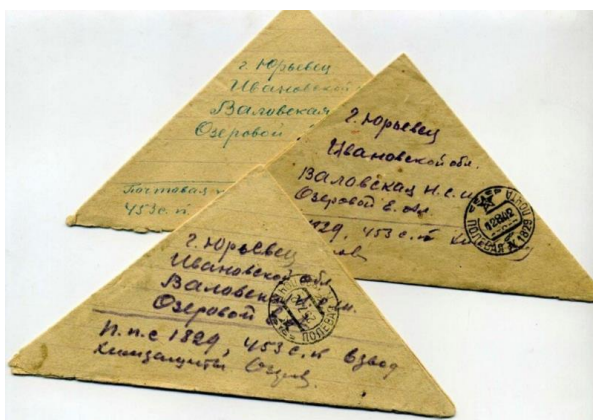 г. Юрьевец
Ивановской
Валовская
Озеровой
Почтовая
453 с. п
г. Юрьевец
Ивановской обл.
Валовская н. с. ш
Озеровой Е.
1829, 453 с. п
ПОЛЕВАЯ ПОЧТА
1829
г. Юрьевец
Ивановской обл
Валовская ш.
Озеровой
П. п. с 1829, 453 с. п взвод
химзащиты
ПОЛЕВАЯ